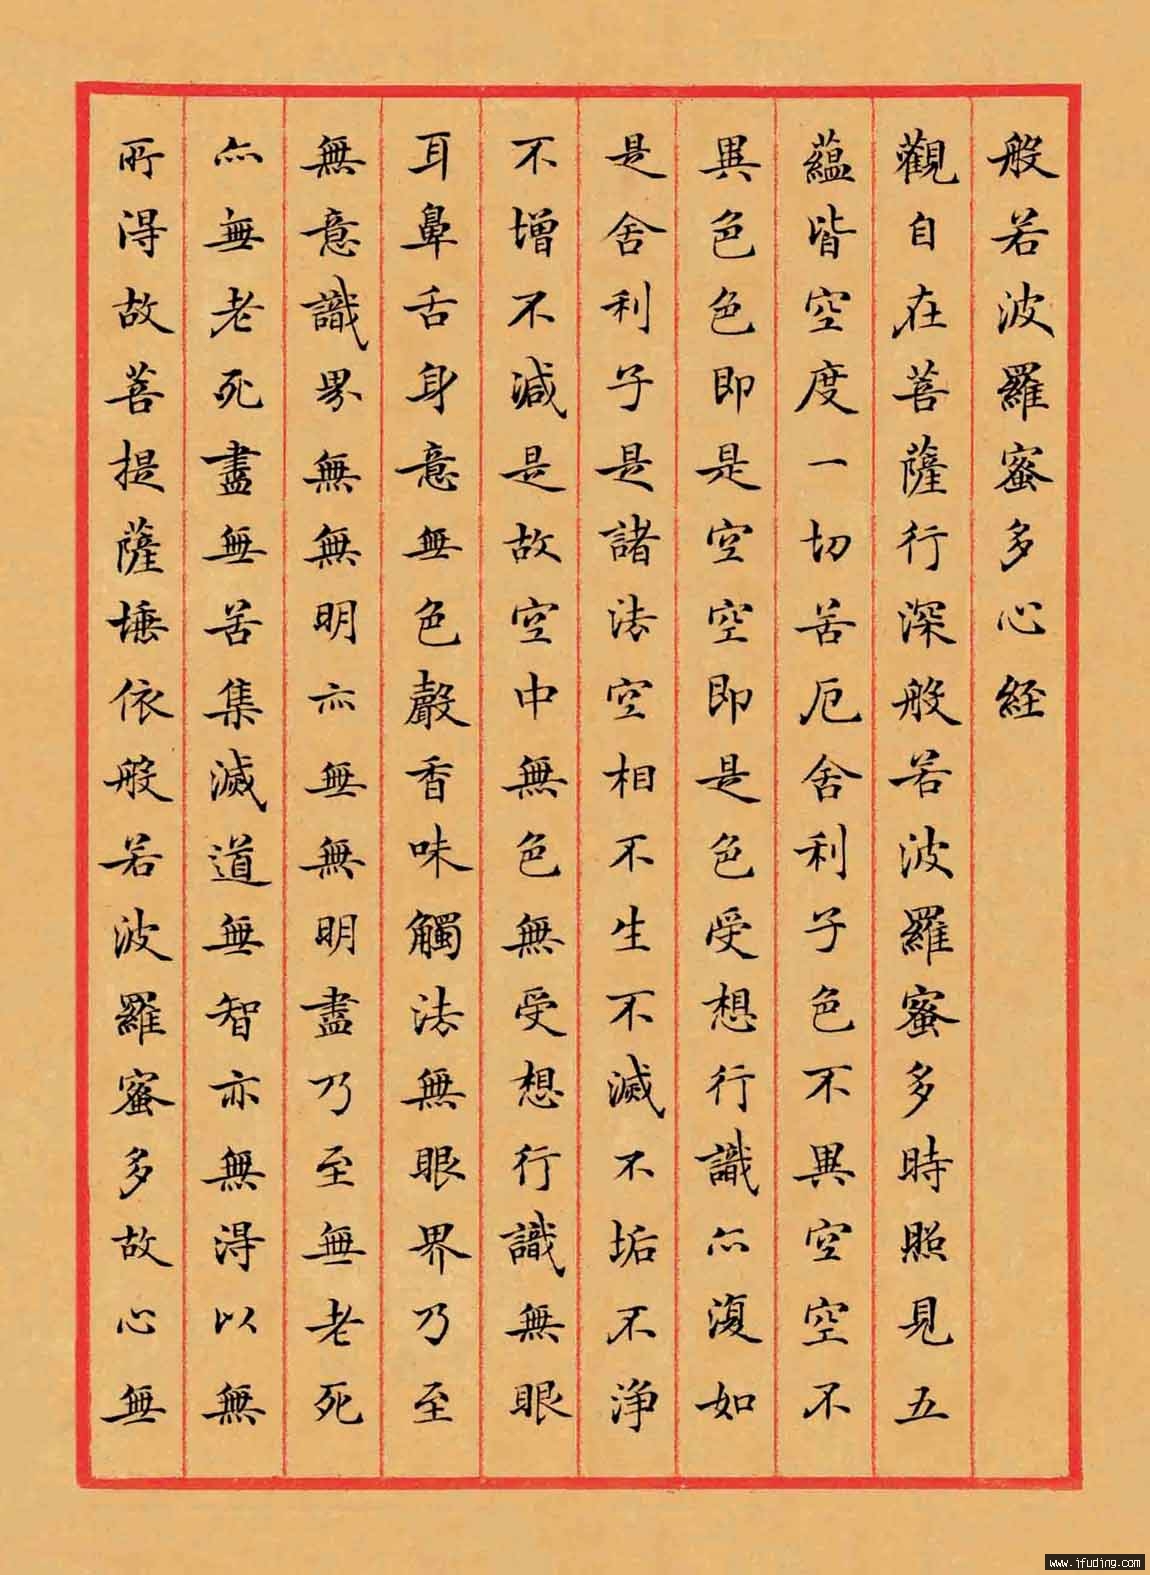 般若波羅蜜多心経
觀自在菩薩行深般若波羅蜜多時照見五
蘊皆空度一切苦厄舍利子色不異空空不
異色色即是空空即是色受想行識亦復如
是舍利子是諸法空相不生不滅不垢不淨
不增不減是故空中無色無受想行識無眼
耳鼻舌身意無色聲香味觸法無眼界乃至
無意識界無無明亦無無明盡乃至無老死
亦無老死盡無苦集滅道無智亦無得以無
所得故菩提薩埵依般若波羅蜜多故心無
www.jfuding.com